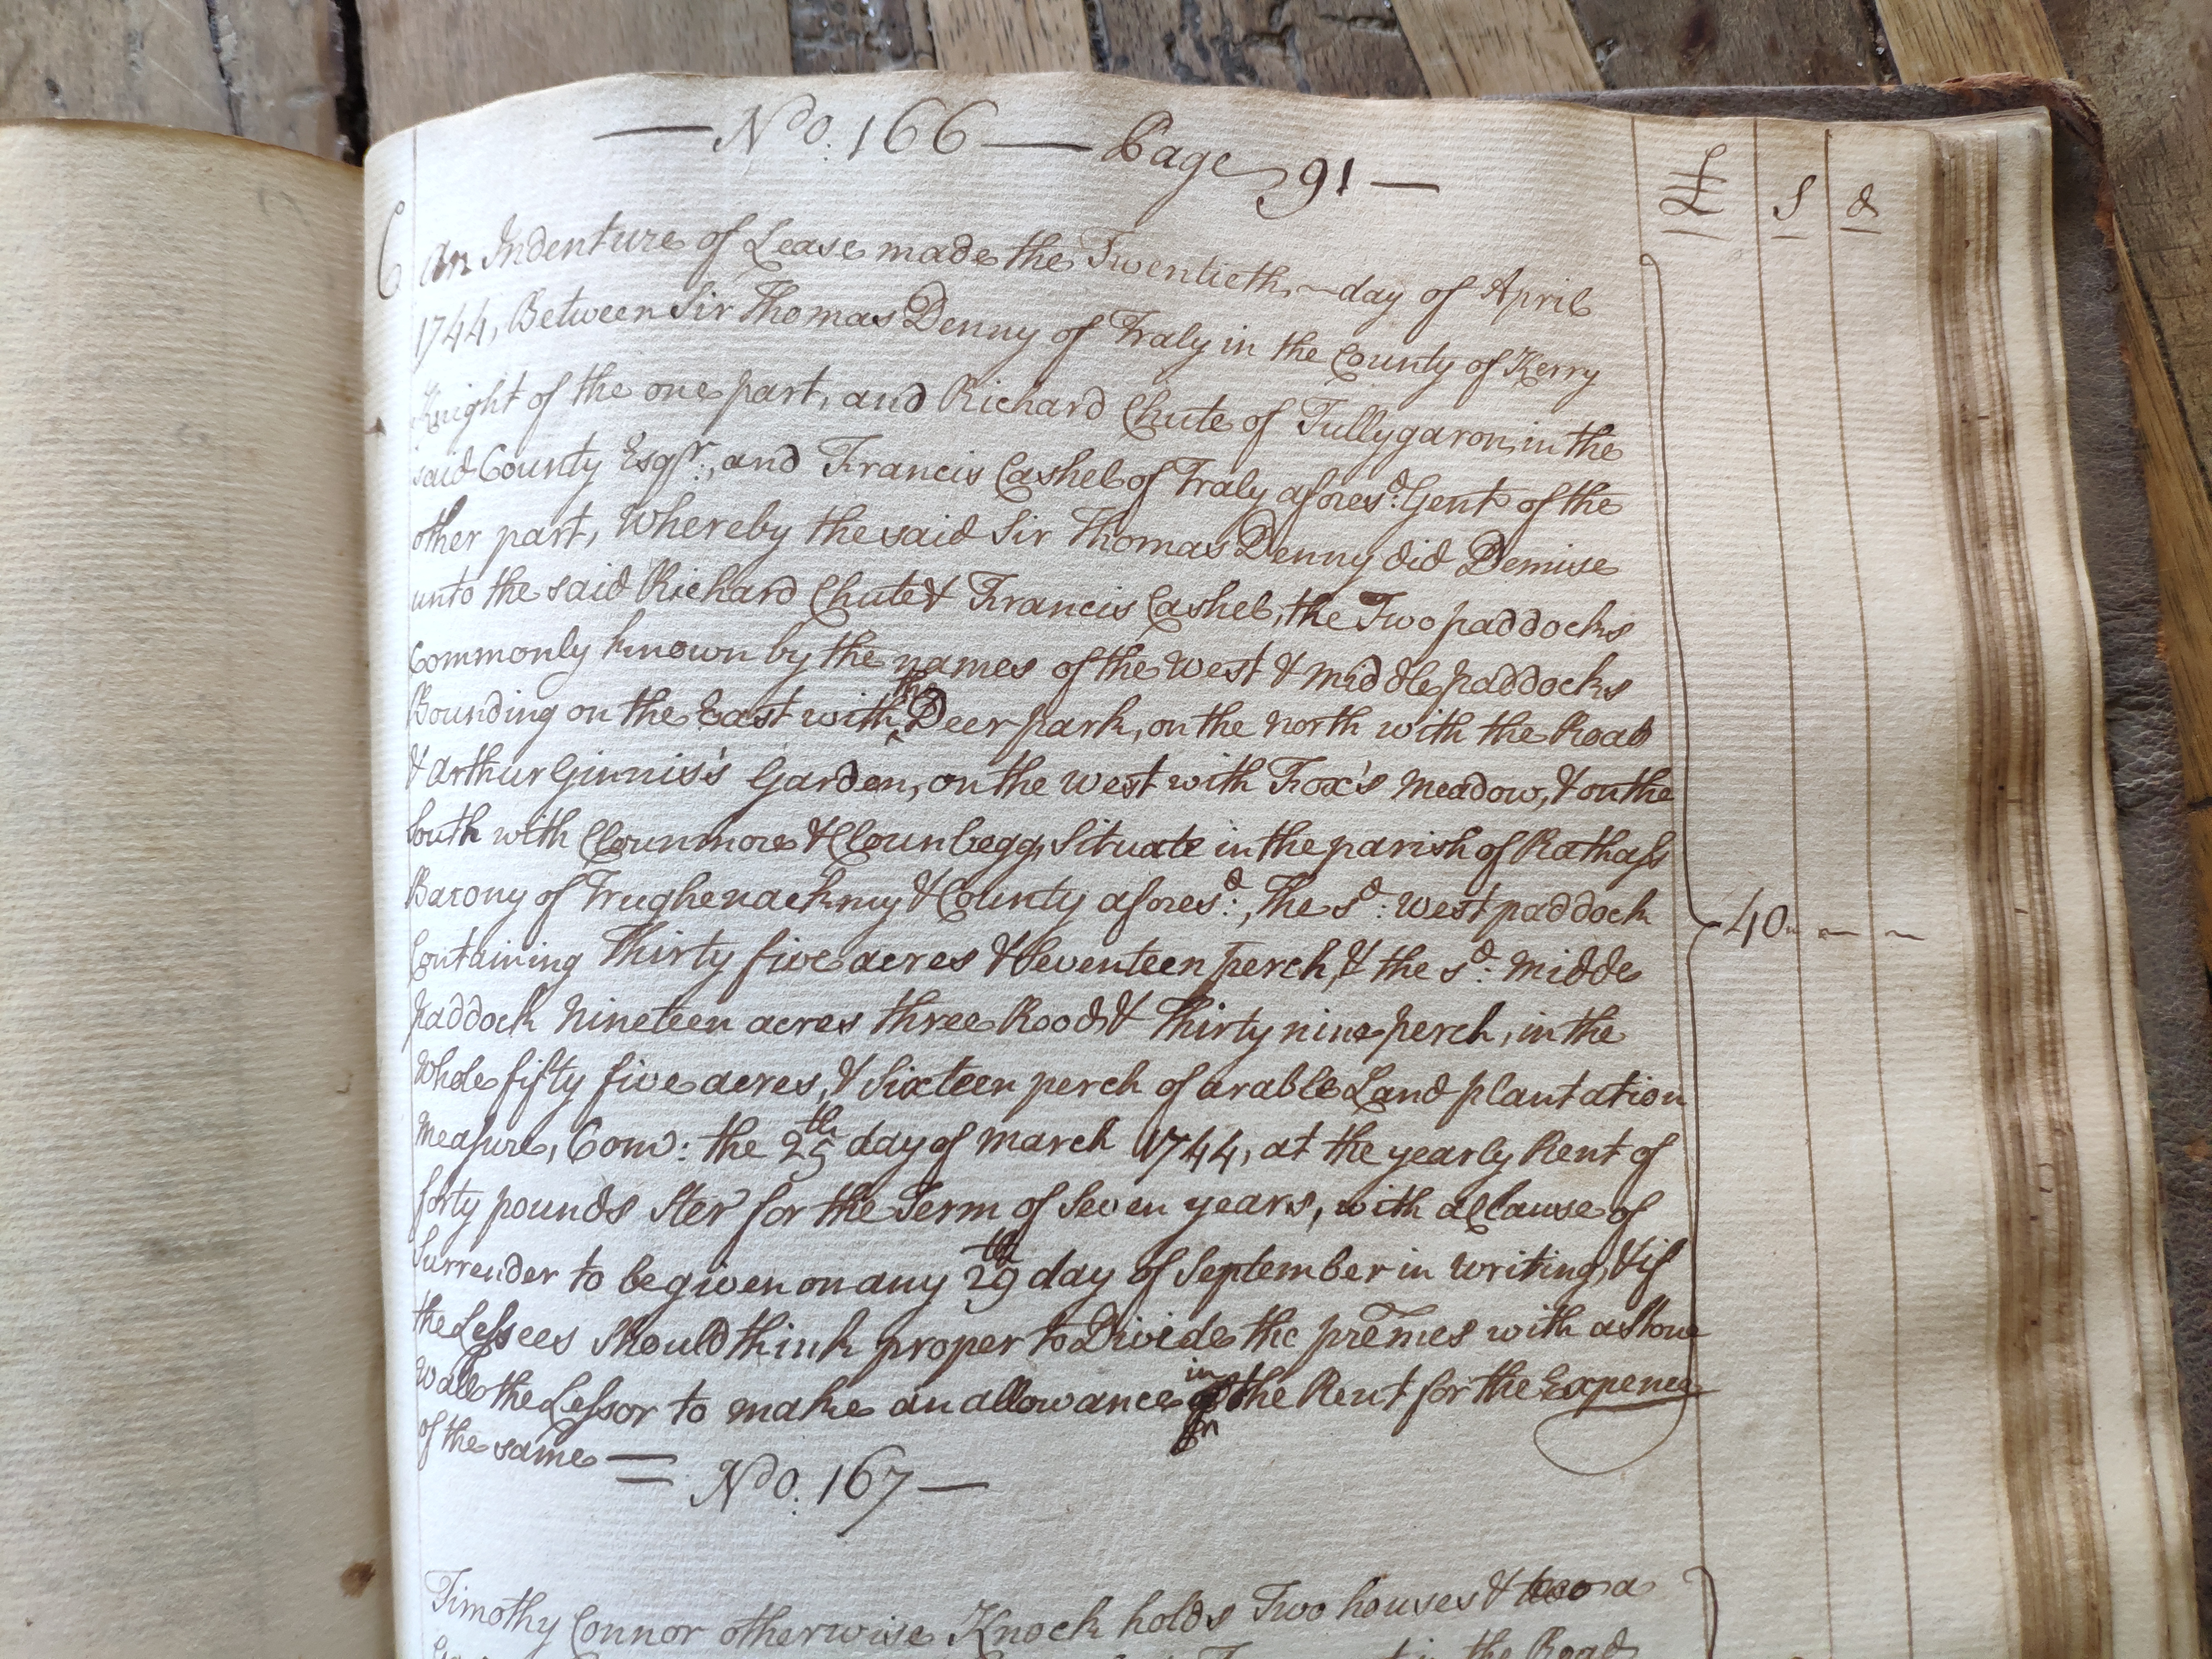 — No. 166 — Page 91 —
£ s d
6 An Indenture of Lease made the Twentieth ~ day of April
1744, Between Sir Thomas Denny of Traly in the County of Kerry
Knight of the one part, and Richard Chute of Tullygaron in the
said County Esqr., and Francis Cashel of Traly afores.d Gent of the
other part, Whereby the said Sir Thomas Denny did Demise
unto the said Richard Chute & Francis Cashel, the Two paddocks
Commonly known by the names of the West & middle paddocks
Bounding on the East with ^the Deer park, on the North with the Road
& Arthur Ginnis's Garden, on the West with Fox's Meadow, & on the
South with Clounmore & Clounbegg, Situate in the parish of Rathass
Barony of Trughenackmy & County afores.d, The s.d West paddock
Containing Thirty five acres & Seventeen perch, & the s.d midde
paddock Nineteen acres three Rood & Thirty nine perch, in the
Whole fifty five acres, & Sixteen perch of arable Land plantation
Measure, Com: the 25th day of March 1744, at the yearly Rent of
forty pounds Ster for the Term of Seven years, with a Clause of
Surrender to be given on any 29th day of September in Writing, & if
the Lessees Should think proper to Divide the premes with a Stone
Wall the Lessor to make an allowance in the Rent for the Expence
of the same =
40 — —
No. 167 —
Timothy Connor otherwise Knock holds Two houses & a
in the Road